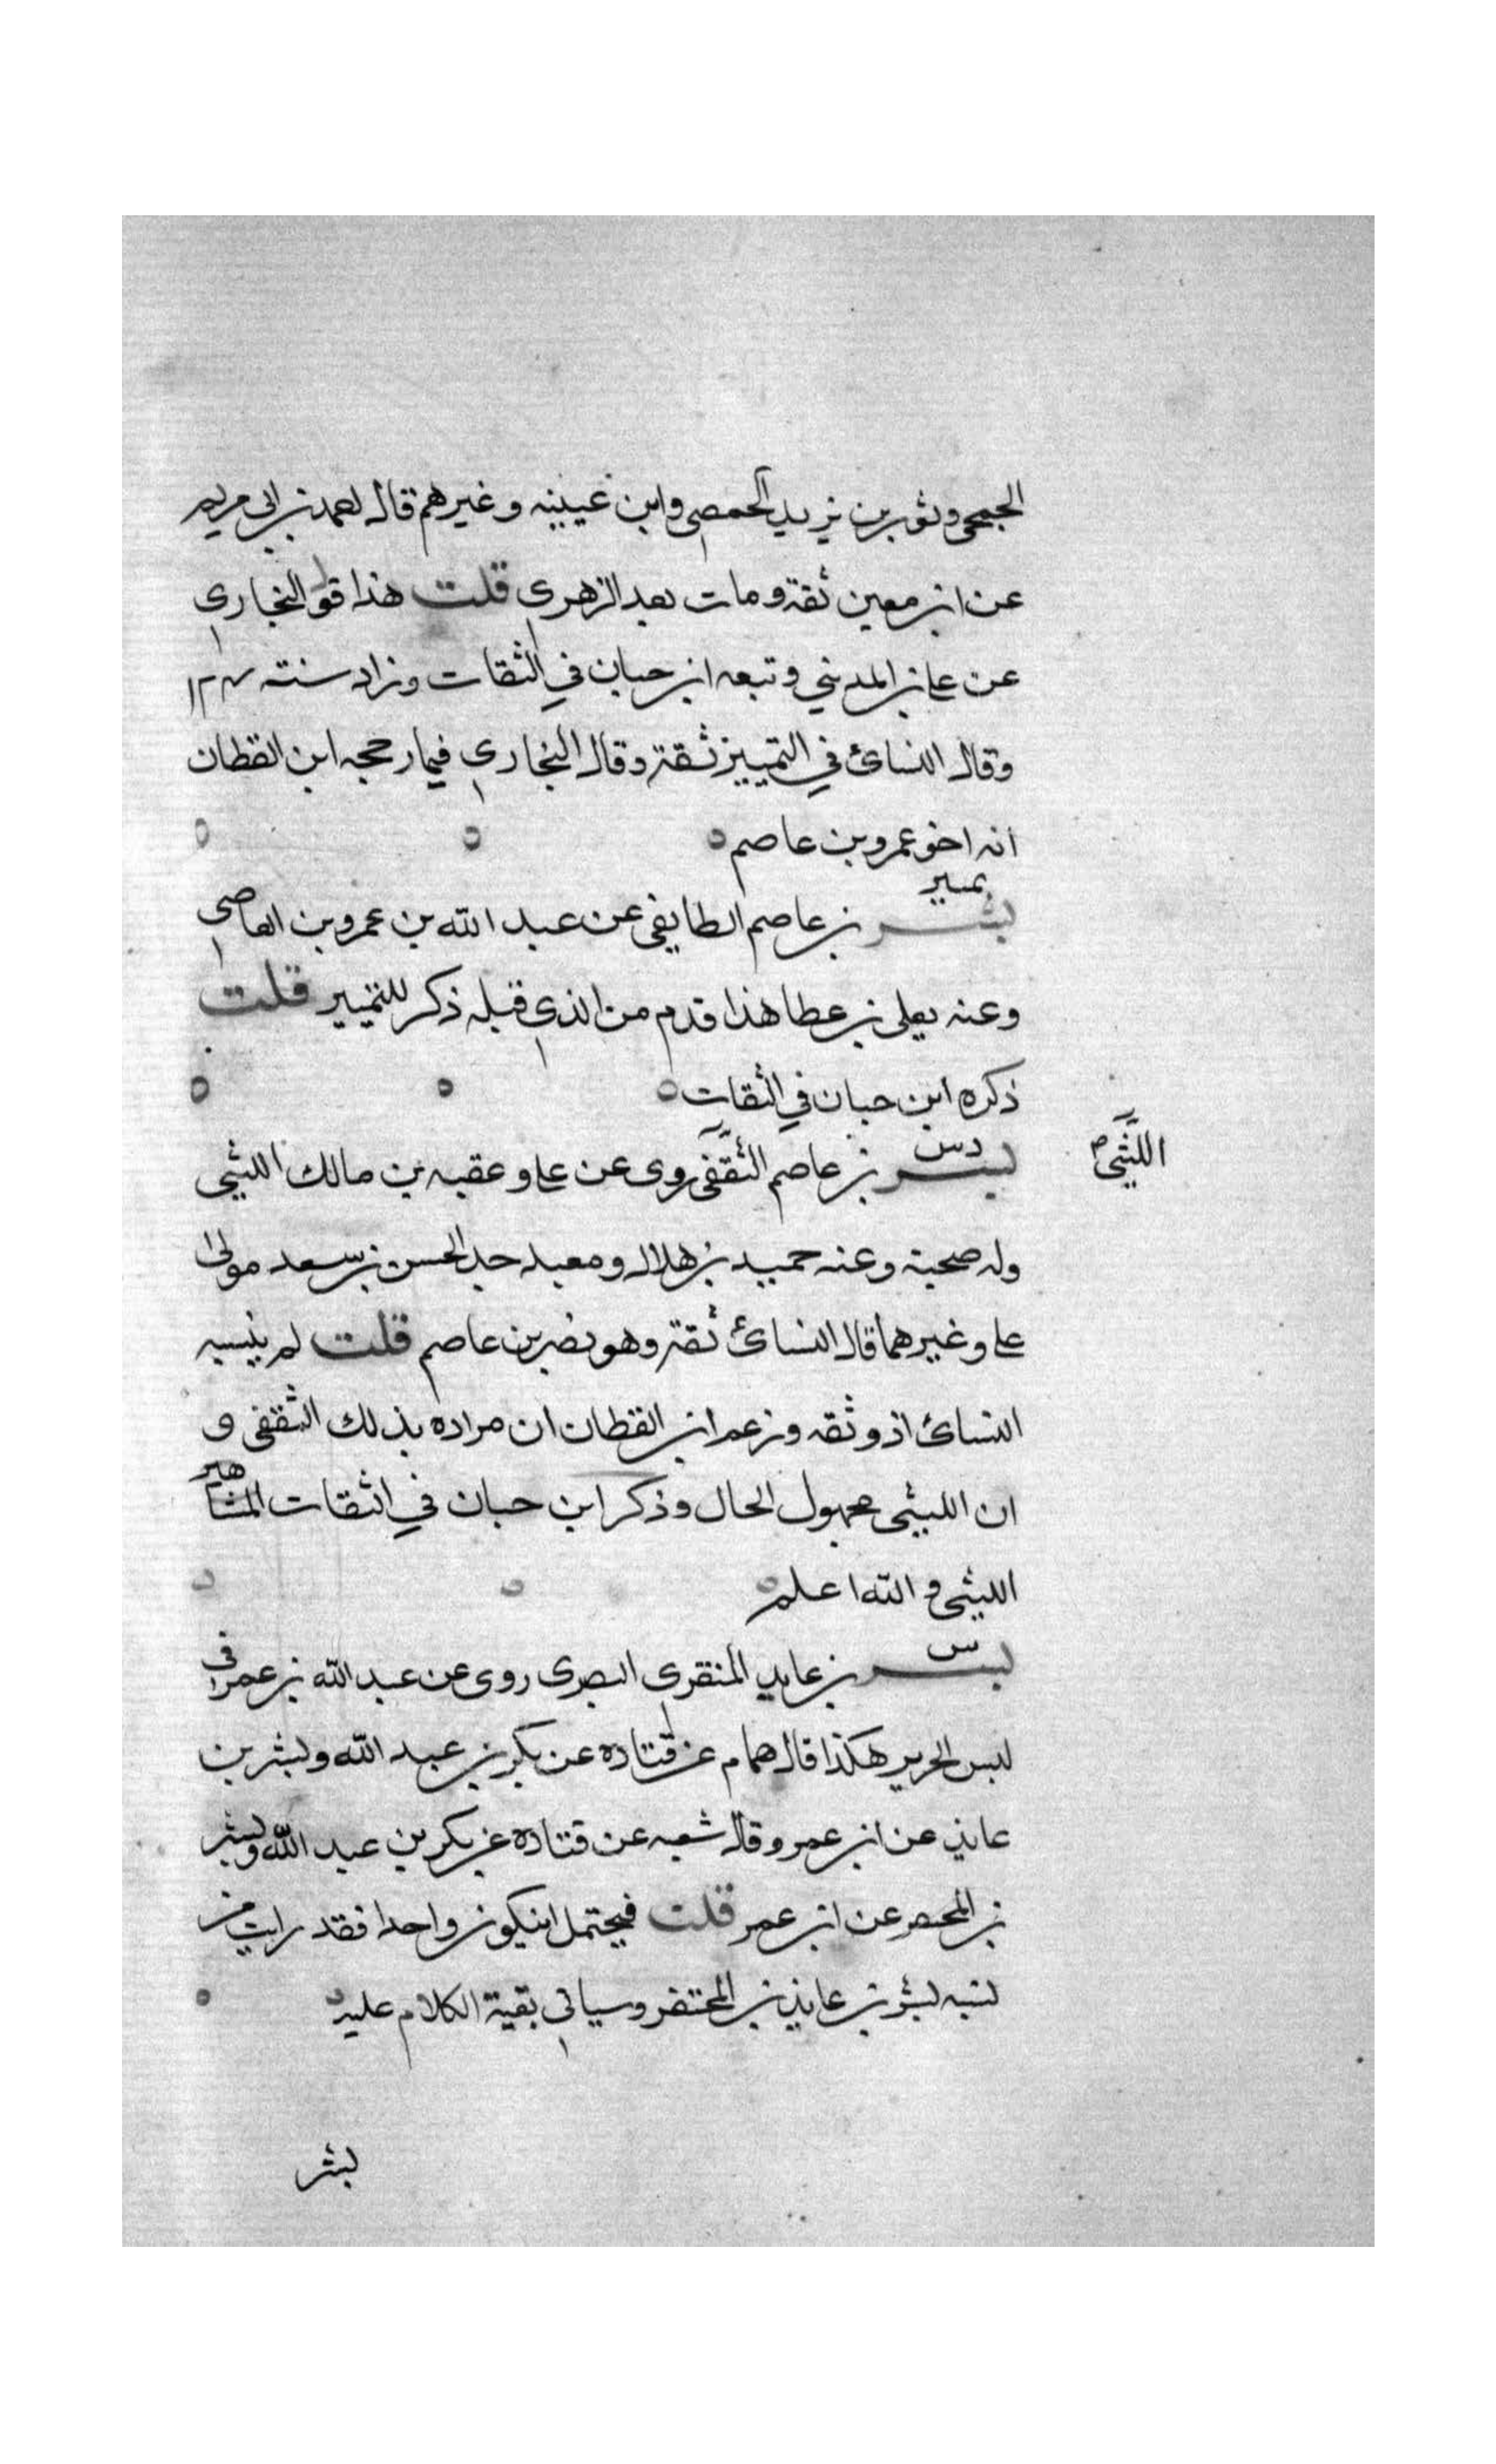 الجمحي وثور بن يزيد الحمصي وابن عيينه وغيرهم قال احمد بن ابي مريم
عن ابن معين ثقة ومات بعد الزهري قلت هذا قول البخاري
عن علي بن المديني وتبعه ابن حبان في الثقات وزاد سنته ١٢٤
وقال النسائ في التمييز ثقة وقال البخاري فيما رجحه ابن القطان
انه اخو عمرو بن عاصم
تمييز
بشر بن عاصم الطايفي عن عبد الله بن عمرو بن العاصي
وعنه يعلى بن عطا هذا قدم من الذي قبله ذكر للتمييز قلت
ذكره ابن حبان في الثقات
د س
بشر بن عاصم الثقفي روى عن علي وعقبه بن مالك الليثي
الليثي
وله صحبة وعنه حميد بن هلال ومعبد جد الحسن بن سعد مولى
علي وغيرهما قال النسائ ثقة وهو نصر بن عاصم قلت لم ينسبه
النسائ اذ وثقه وزعم ابن القطان ان مراده بذلك الثقفي و
ان الليثي مجهول الحال وذكر ابن حبان في الثقات المشاهير
الليثي والله اعلم
س
بشر بن عايد المنقري البصري روى عن عبد الله بن عمر في
لبس الحرير هكذا قال همام عن قتاده عن بكر بن عبد الله وبشر بن
عايذ عن ابن عمر وقال شعبه عن قتاده عن بكر بن عبد الله وبشر
بن المحتصر عن ابن عمر قلت فيحتمل ان يكون واحدا فقد رايت من
نسبه بشر بن عايذ بن المحتفر وسياتي بقية الكلام عليه
بشر